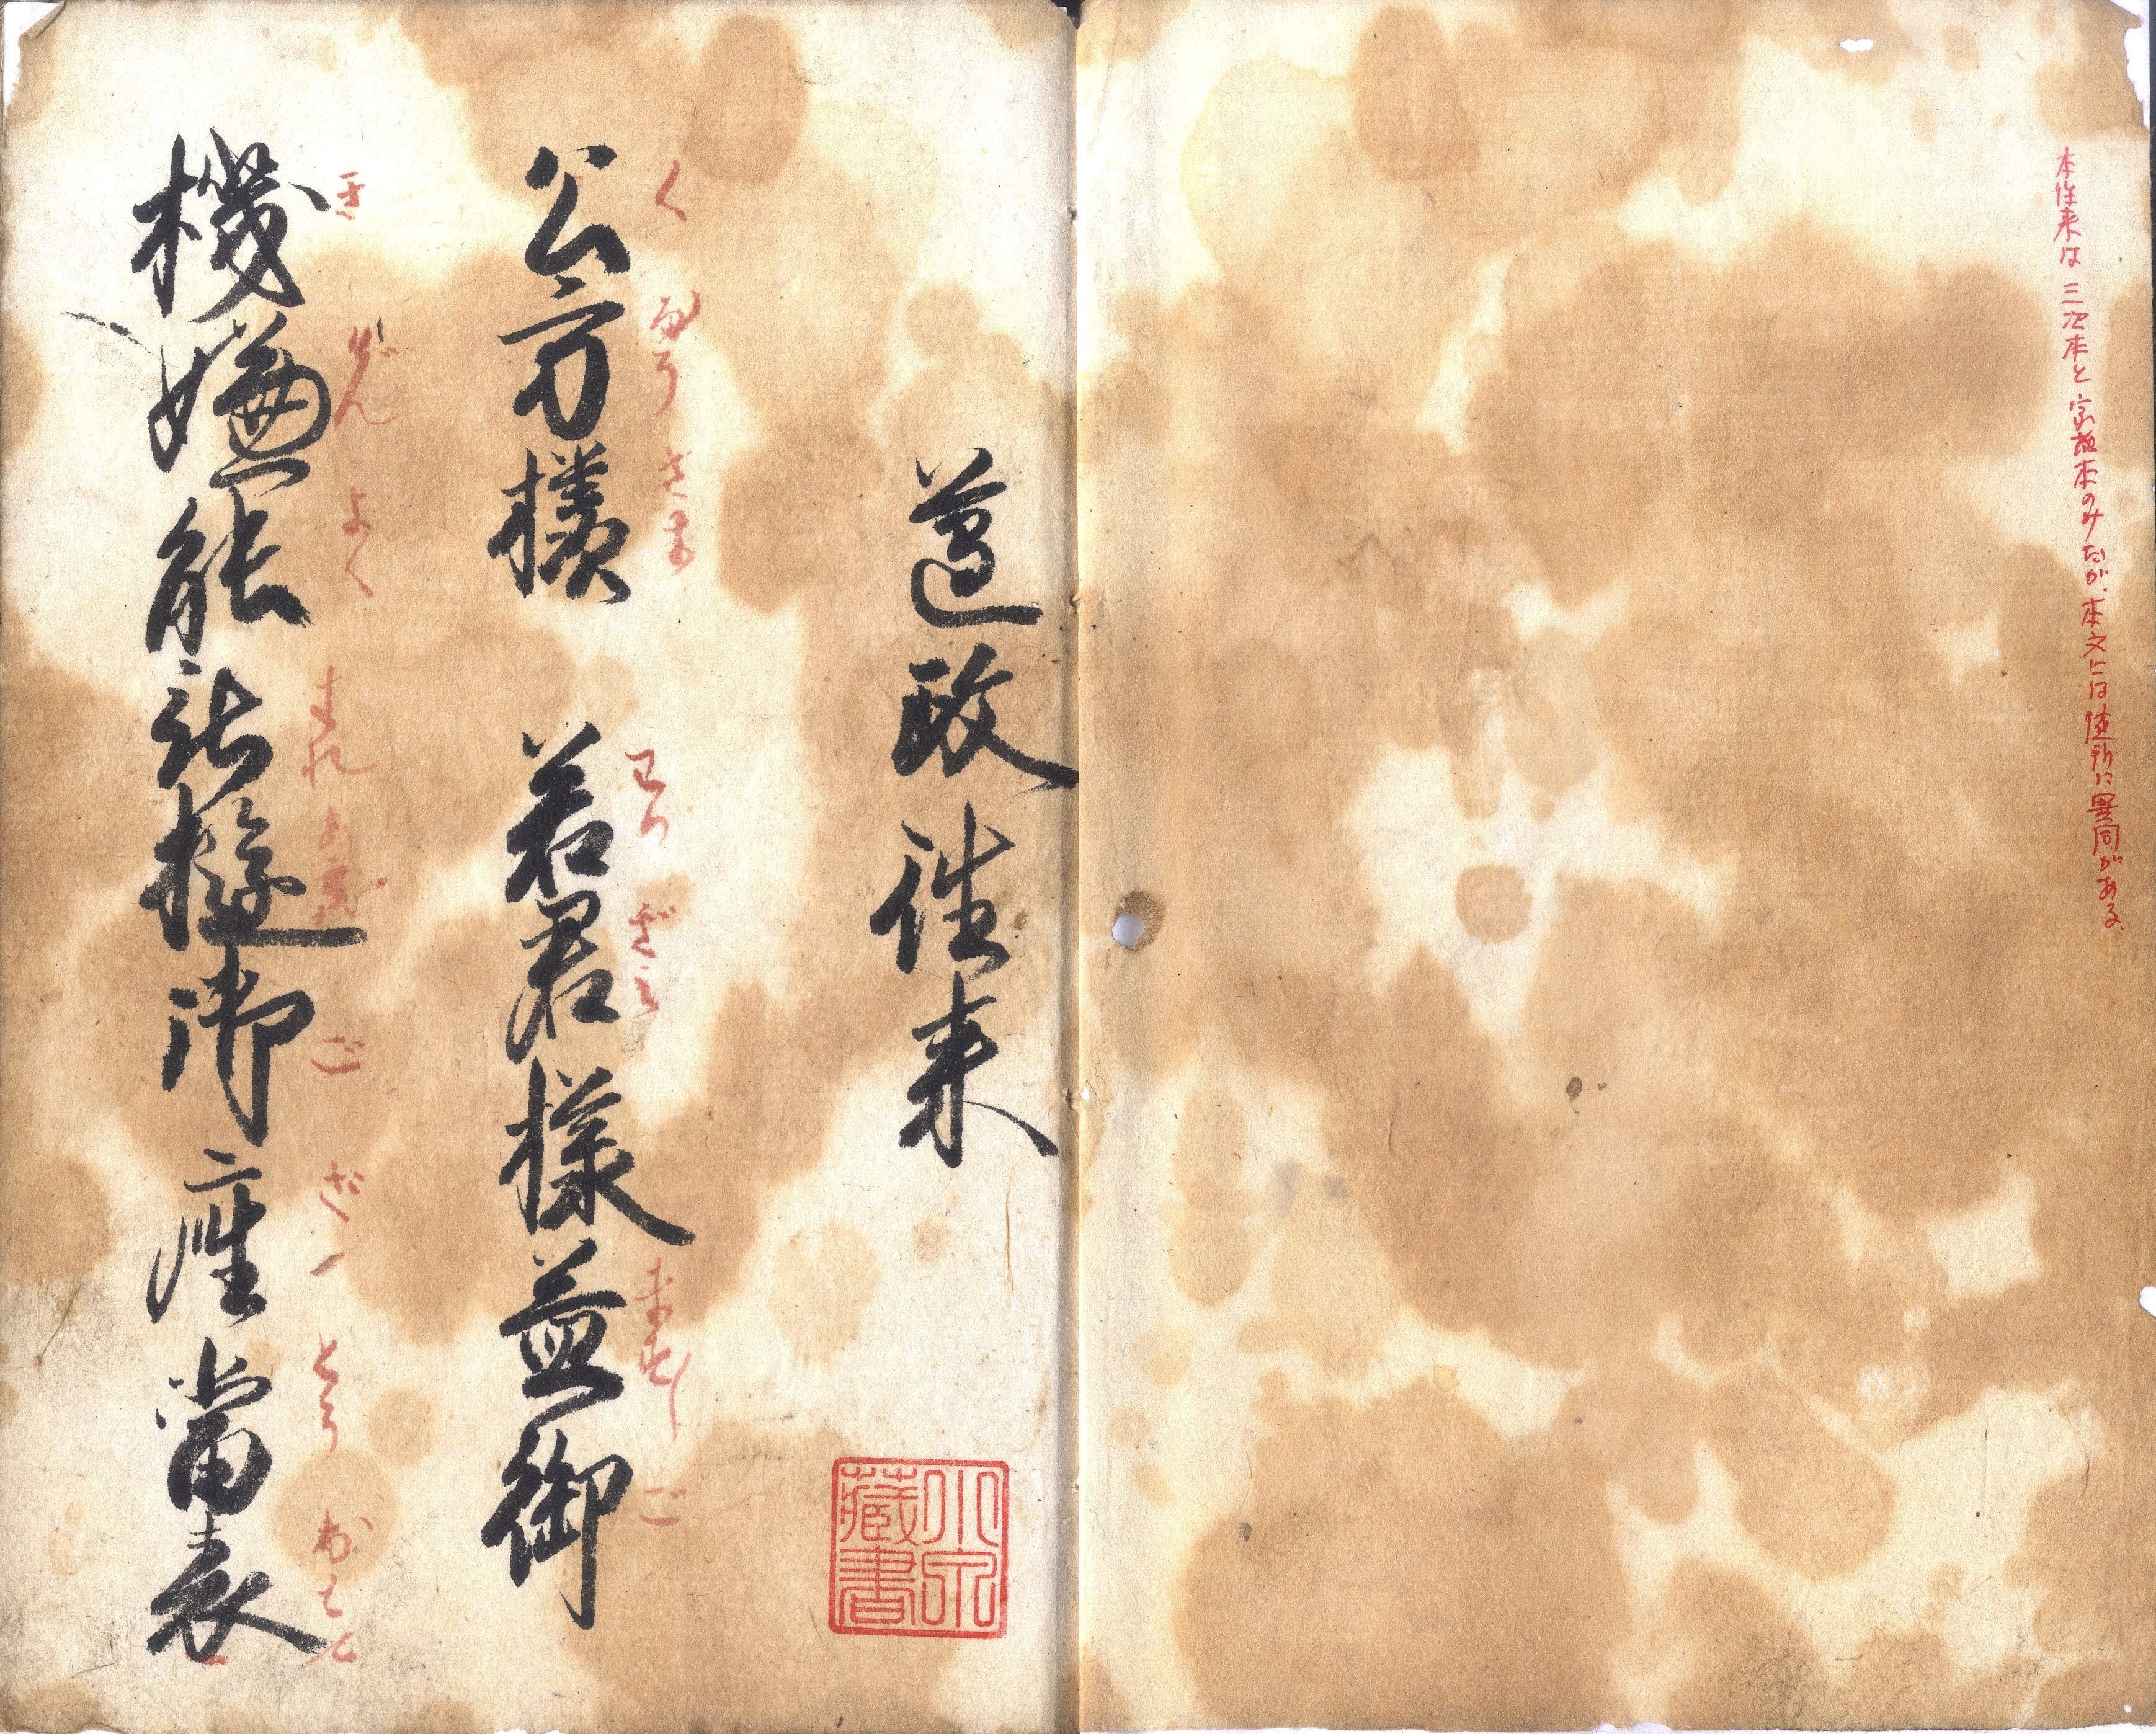 本往来は三次本と家蔵本のみだが、本文には随所に異同がある。
遵政往来
小泉
藏書
く うさま わか ぎみ ますます ご
公方様 若君様益御
き げん よく され あそ ご ざ とう おもて
機嫌能被遊御座當表